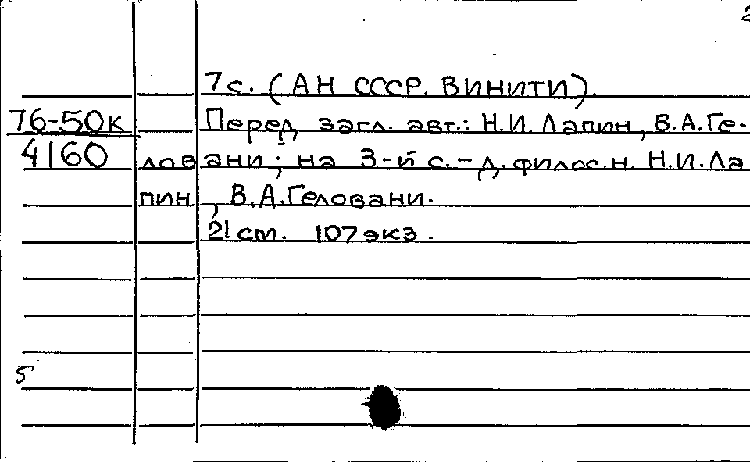 2
7 с. (АН СССР. ВИНИТИ).
76-50к Перед загл. авт.: Н.И. Лапин, В.А. Ге-
4160 ловани; на 3-й с. – д. филос. н. Н.И. Ла
пин, В.А. Геловани.
21 см. 107 экз.
5